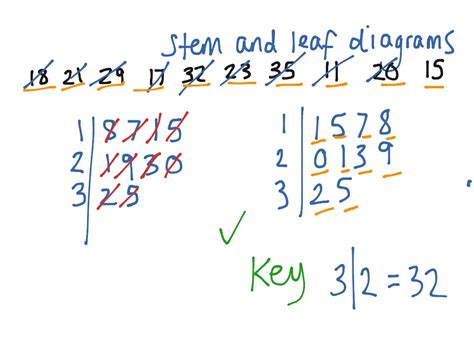 Stem and leaf diagrams
18 21 29 17 32 23 35 11 20 15
1 | 8 7 1 5
2 | 1 9 3 0
3 | 2 5
1 | 1 5 7 8
2 | 0 1 3 9
3 | 2 5
Key 3|2 = 32